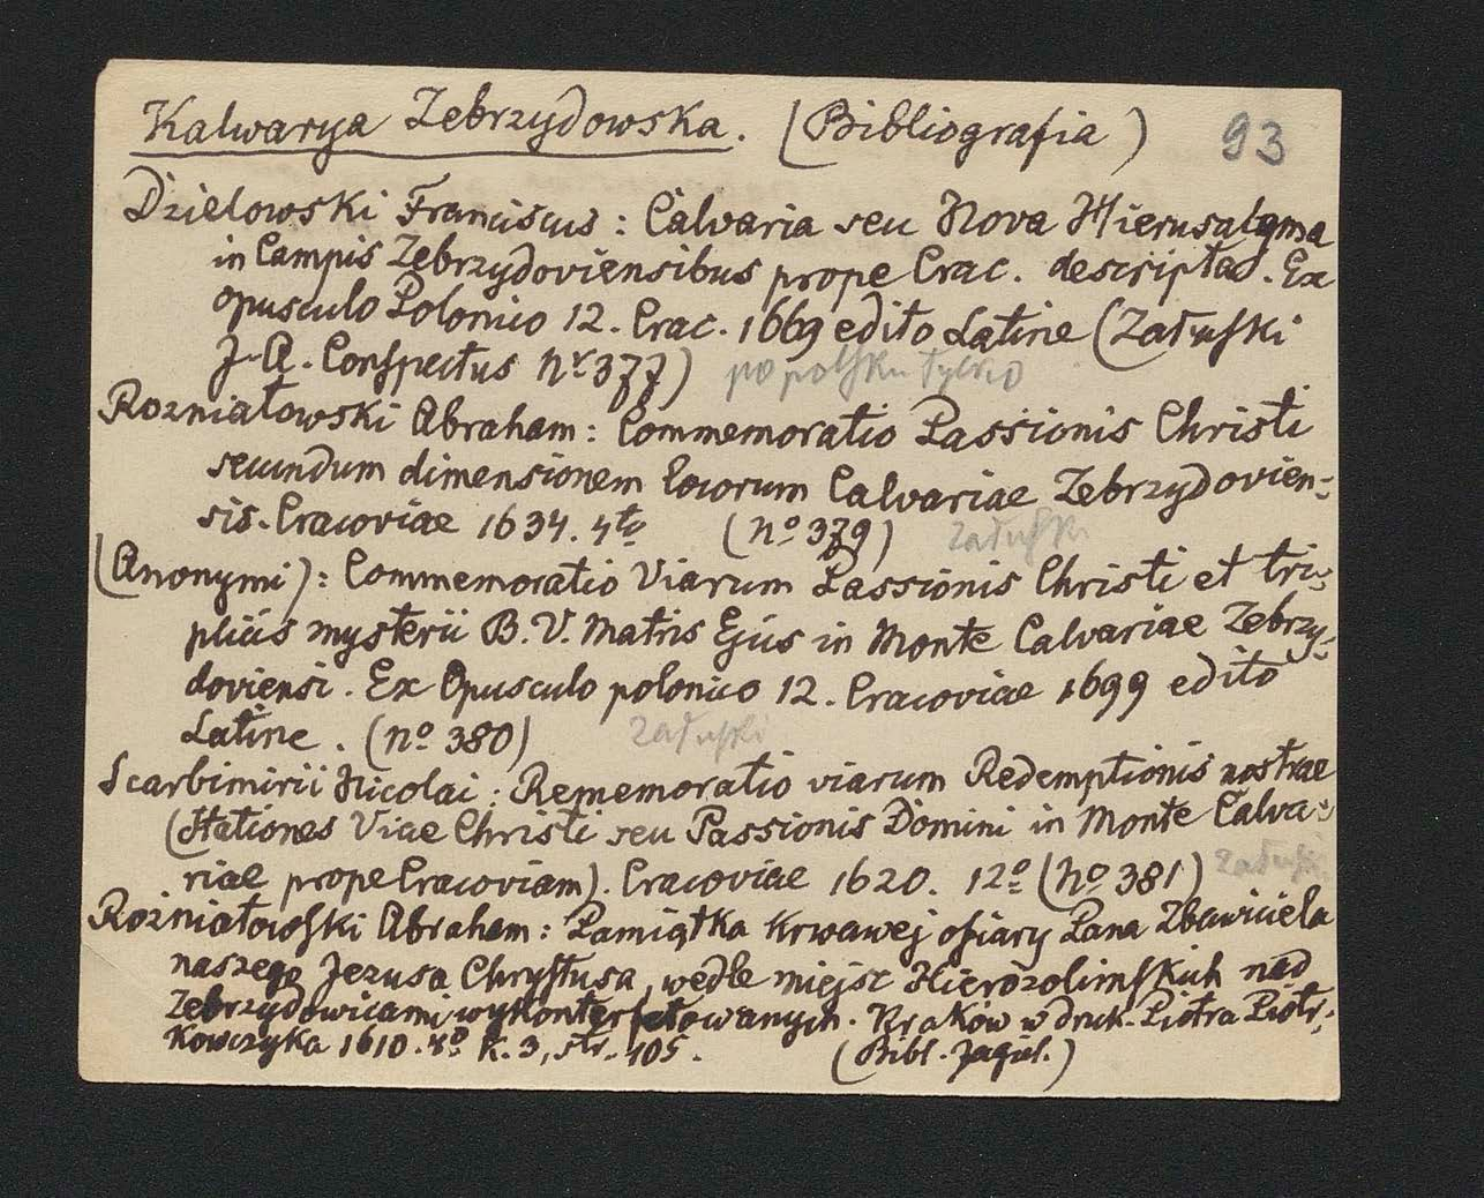 Kalwarya Zebrzydowska. (Bibliografia) 93
Dzielowski Franciscus: Calvaria seu Nova Hierusalema
in Campis Zebrzydoviensibus prope Crac. descripta. Ex
opusculo Polonico 12. Crac. 1669 edito Latine (Załuski
J. A. Conspectus Nr 377) po polsku tylko
Rozniatowski Abraham: Commemoratio Passionis Christi
secundum dimensionem locorum Calvariae Zebrzydovien-
sis. Cracoviae 1634. 4to (No 379) Załuski
(Anonymi): Commemoratio Viarum Passionis Christi et tri-
plicis mysterii B. V. Matris Ejus in Monte Calvariae Zebrzy-
doviensi. Ex Opusculo polonico 12. Cracoviae 1699 edito
Latine. (no 380) Załuski
Scarbimirii Nicolai: Rememoratio viarum Redemptionis nostrae
(Stationes Viae Christi seu Passionis Domini in Monte Calva-
riae prope Cracoviam). Cracoviae 1620. 12o (No 381) Załuski
Rożniatowski Abraham: Pamiątka krwawej ofiary Pana Zbawiciela
naszego Jezusa Chrystusa, wedle miejsc Hierozolimskich nad
Zebrzydowicami wykonterfetowanych. Kraków w druk. Piotra Piotr-
kowczyka 1610. k. 3, str. 105. (Bibl. Jagiel.)